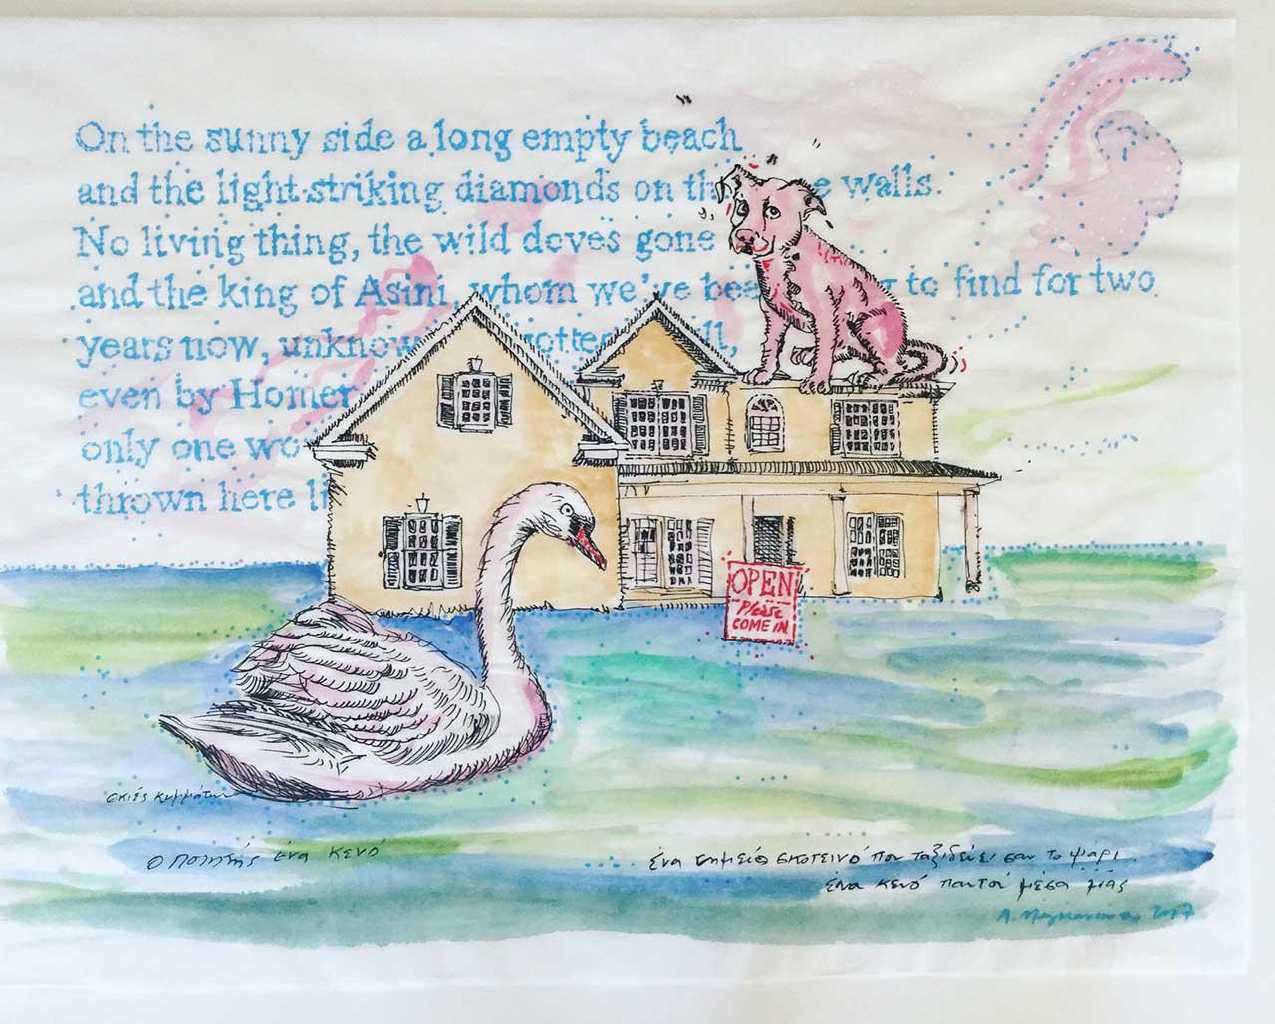 On the sunny side a long empty beach
and the light striking diamonds on th e walls.
No living thing, the wild doves gone
and the king of Asini, whom we've bee g to find for two
years now, unknow otte ll,
even by Homer
only one wo
thrown here li
OPEN
Please
COME IN
σκιές κυμμάτων
ο ποιητής ένα κενό
ένα σημείο σκοτεινό που ταξιδεύει σαν το ψάρι
ένα κενό παντού μέσα μας
2017